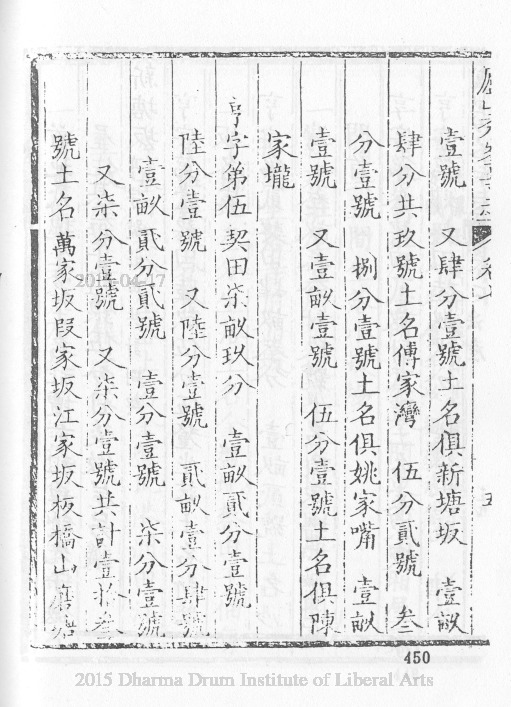 壹號　又肆分壹號土名俱新塘坂　壹畝
肆分共玖號土名傅家灣　伍分貳號　叁
分壹號　捌分壹號土名俱姚家嘴　壹畝
壹號　又壹畝壹號　伍分壹號土名俱陳
家壠
亨字弟伍契田柒畝玖分　壹畝貳分壹號
陸分壹號　又陸分壹號　貳畝壹分肆號
壹畝貳分貳號　壹分壹號　柒分壹號
又柒分壹號　又柒分壹號共計壹拾叁
號土名萬家坂段家坂江家坂板橋山磨塘
450
2014-04-17
2015 Dharma Drum Institute of Liberal Arts